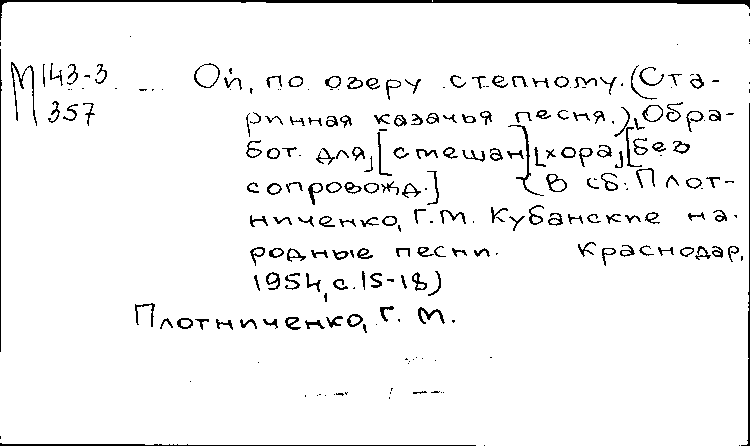 М 143-3 Ой, по озеру степному. (Ста-
357 ринная казачья песня.), Обра-
бот. для, [смешан] [хора, [без
сопровожд.] (В сб: Плот-
ниченко, Г.М. Кубанские на-
родные песни. Краснодар,
1954, с. 15-18)
Плотниченко, Г. М.